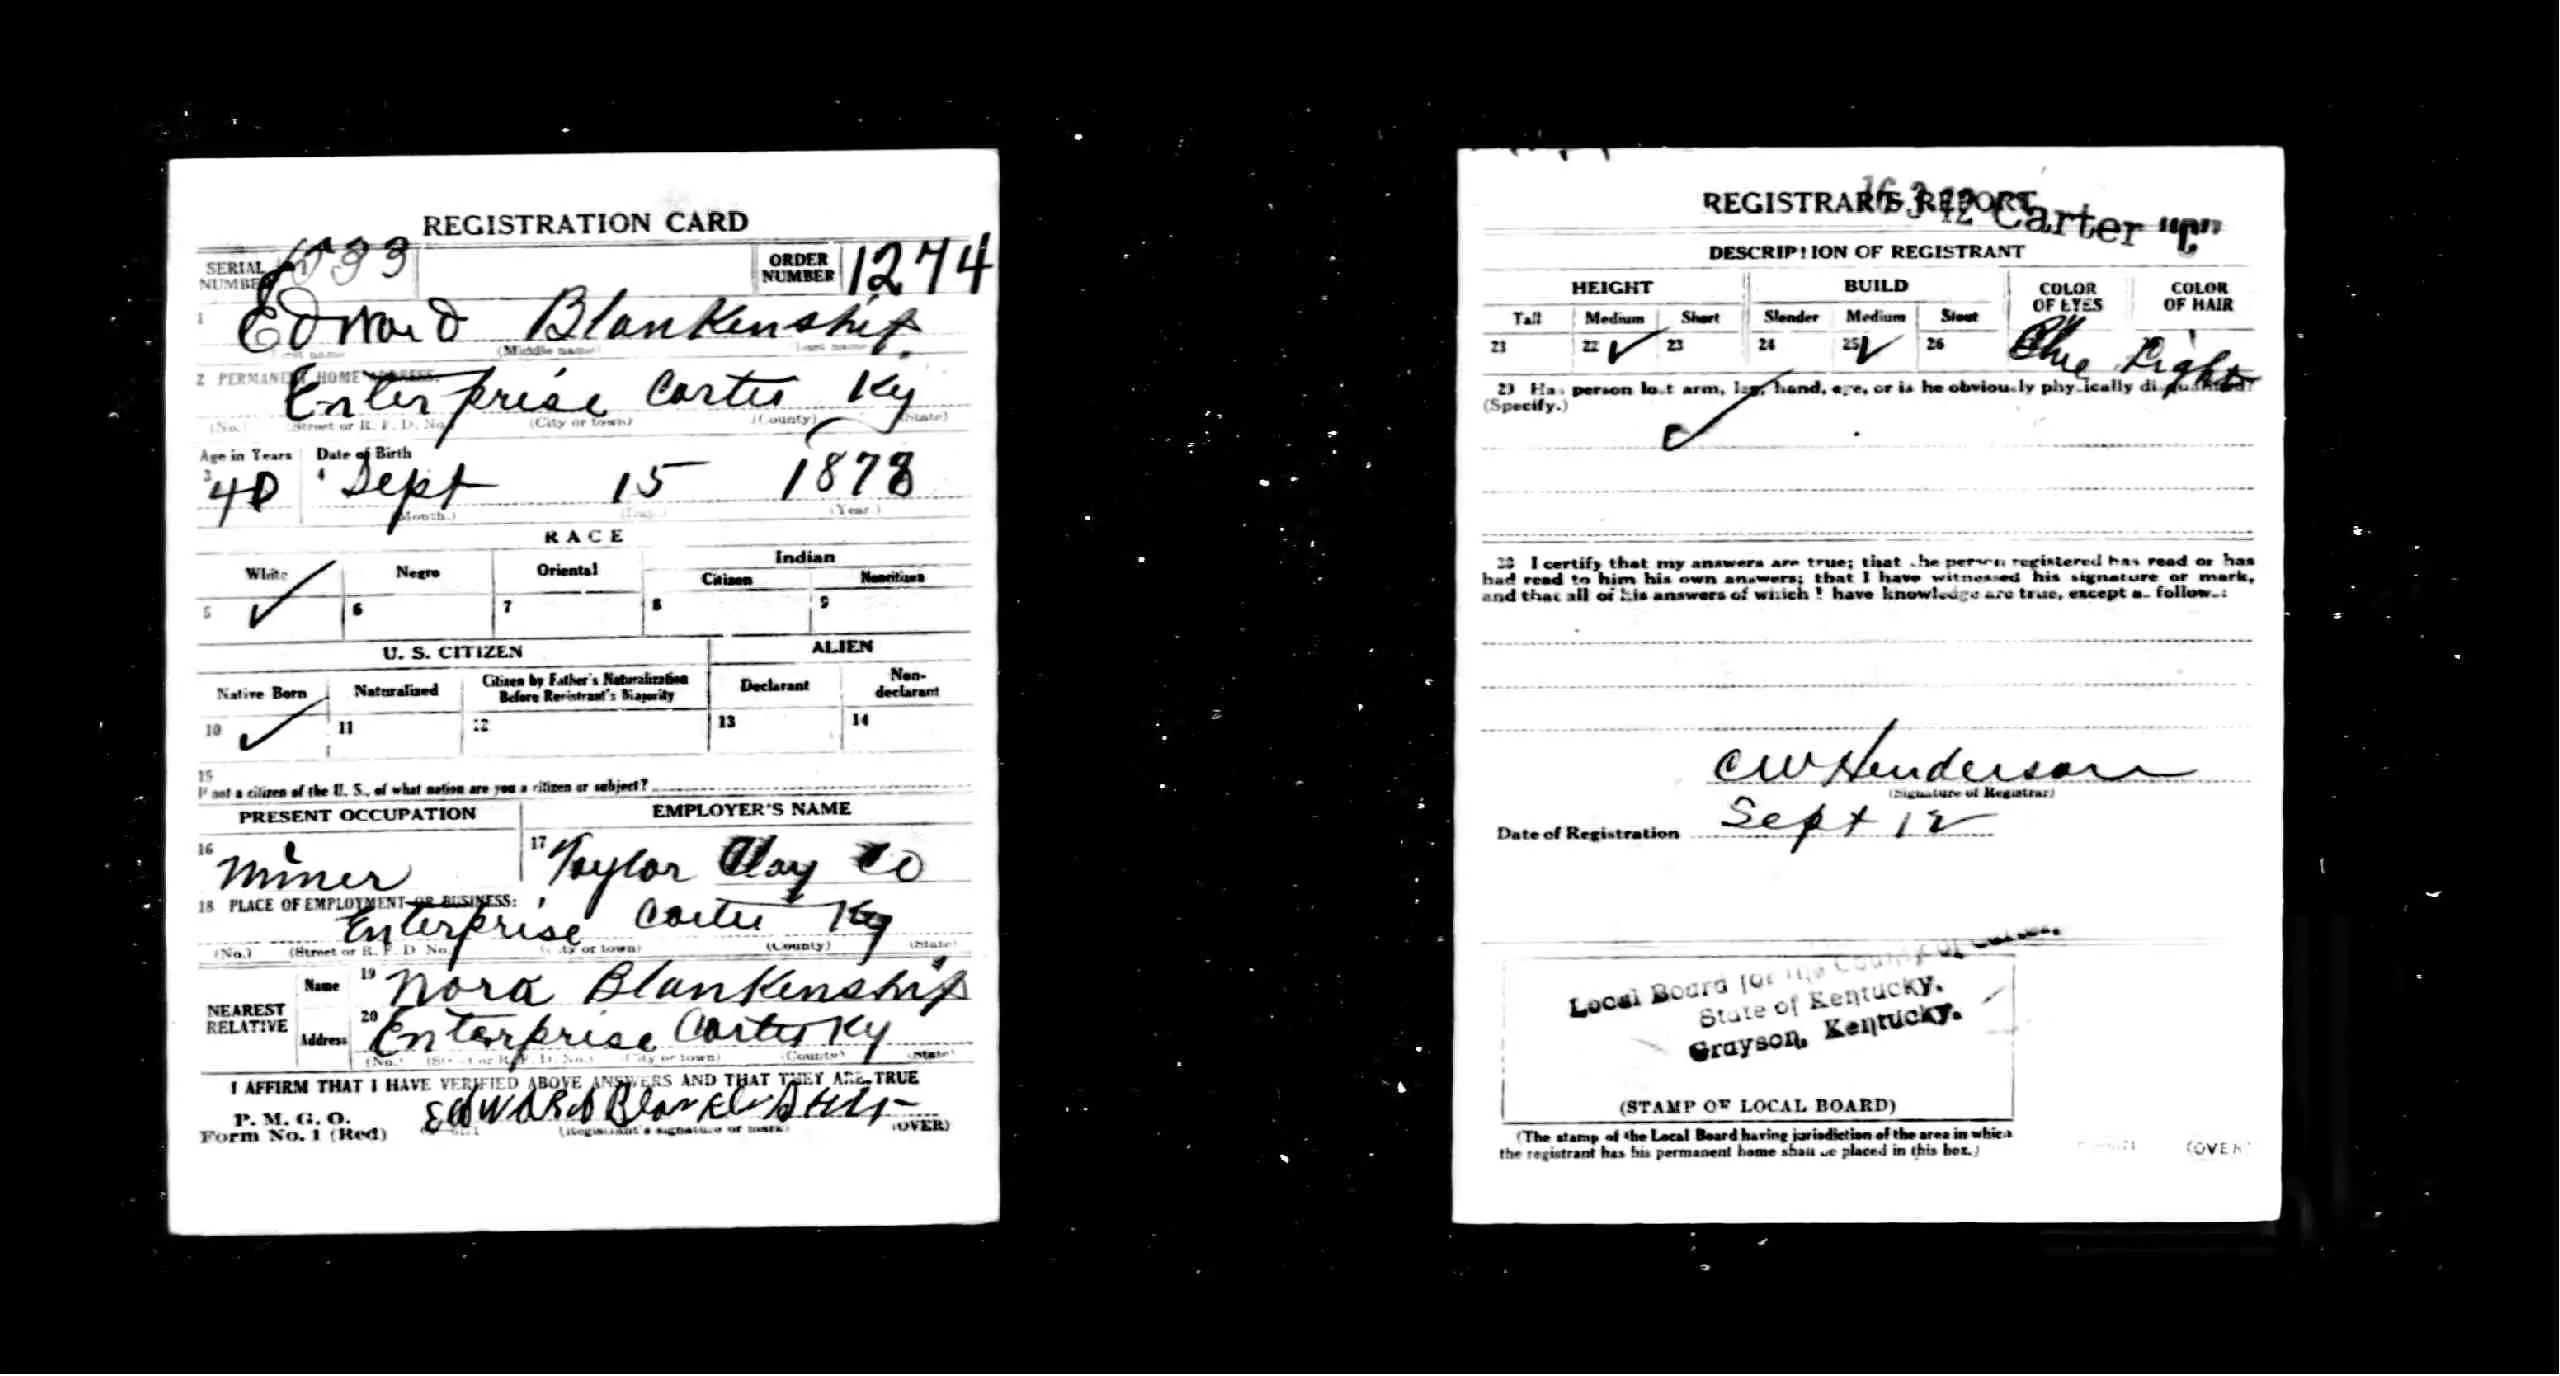 REGISTRATION CARD
SERIAL NUMBER
ORDER NUMBER 1274
1 Edward Blankenship
(Middle name) (Last name)
2 PERMANENT HOME ADDRESS:
Enterprise Carter Ky
(No.) (Street or R. F. D. No.) (City or town) (County) (State)
Age in Years Date of Birth
3 40 4 Sept 15 1878
(Month.) (Day.) (Year.)
RACE
White Negro Oriental Indian
Citizen Noncitizen
5 ✓ 6 7 8 9
U. S. CITIZEN ALIEN
Native Born Naturalized Citizen by Father's Naturalization Before Registrant's Majority Declarant Non-declarant
10 ✓ 11 12 13 14
15
If not a citizen of the U. S., of what nation are you a citizen or subject?
PRESENT OCCUPATION EMPLOYER'S NAME
16 Miner 17 Taylor Clay Co
18 PLACE OF EMPLOYMENT OR BUSINESS:
Enterprise Carter Ky
(No.) (Street or R. F. D. No.) (City or town) (County) (State)
NEAREST RELATIVE
Name 19 Nora Blankenship
Address 20 Enterprise Carter Ky
(No.) (Street or R. F. D. No.) (City or town) (County) (State)
I AFFIRM THAT I HAVE VERIFIED ABOVE ANSWERS AND THAT THEY ARE TRUE
P. M. G. O.
Form No. 1 (Red) Edward Blankenship
(Registrant's signature or mark) (OVER)
REGISTRAR'S REPORT
Carter "C"
DESCRIPTION OF REGISTRANT
HEIGHT BUILD COLOR OF EYES COLOR OF HAIR
Tall Medium Short Slender Medium Stout
21 22 ✓ 23 24 25 ✓ 26 Blue Light
29 Has person lost arm, leg, hand, eye, or is he obviously physically disqualified?
(Specify.)
✓
30 I certify that my answers are true; that the person registered has read or has
had read to him his own answers; that I have witnessed his signature or mark,
and that all of his answers of which I have knowledge are true, except as follows:
C W Henderson
(Signature of Registrar)
Date of Registration Sept 12
Local Board for the County of Carter,
State of Kentucky.
Grayson, Kentucky.
(STAMP OF LOCAL BOARD)
(The stamp of the Local Board having jurisdiction of the area in which
the registrant has his permanent home shall be placed in this box.)
(OVER)